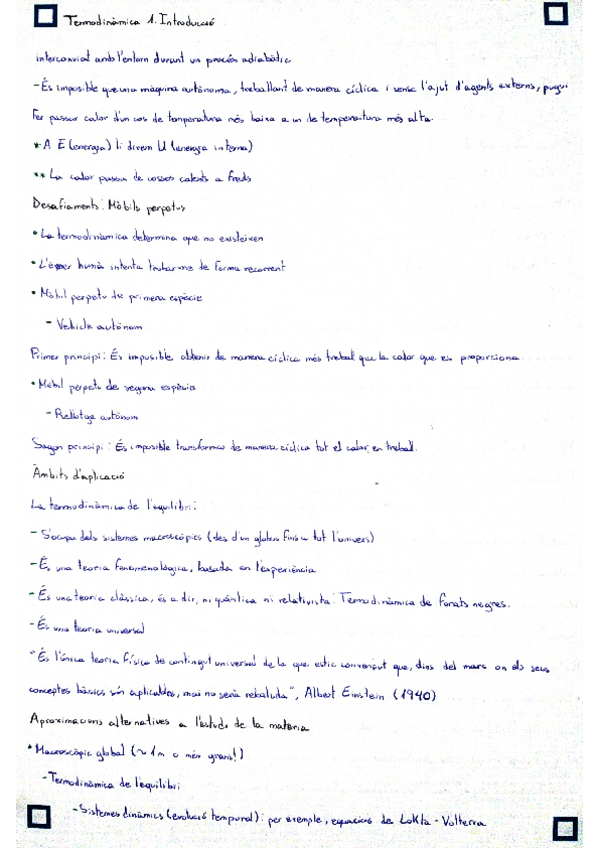 Termodinàmica 1. Introducció
intercanviat amb l'entorn durant un procés adiabàtic
- És impossible que una màquina autònoma, treballant de manera cíclica i sense l'ajut d'agents externs, pugui
fer passar calor d'un cos de temperatura més baixa a un de temperatura més alta.
* A E (energia) li direm U (energia interna)
** La calor passa de cossos calents a freds
Desafiaments: Mòbils perpetus
• La termodinàmica determina que no existeixen
• L'ésser humà intenta trobar-ne de forma recorrent
• Mòbil perpetu de primera espècie
- Vehicle autònom
Primer principi: És impossible obtenir de manera cíclica més treball que la calor que es proporciona
• Mòbil perpetu de segona espècie
- Rellotge autònom
Segon principi: És impossible transformar de manera cíclica tot el calor en treball.
Àmbits d'aplicació
La termodinàmica de l'equilibri:
- S'ocupa dels sistemes macroscòpics (des d'un globus fins a tot l'univers)
- És una teoria fenomenològica, basada en l'experiència
- És una teoria clàssica, és a dir, ni quàntica ni relativista: Termodinàmica de forats negres.
- És una teoria universal
"És l'única teoria física de contingut universal de la que estic convençut que, dins del marc on els seus
conceptes bàsics són aplicables, mai no serà rebatuda", Albert Einstein (1940)
Aproximacions alternatives a l'estudi de la matèria
• Macroscòpic global (~1m o més grans!)
- Termodinàmica de l'equilibri
- Sistemes dinàmics (evolució temporal): per exemple, equacions de Lokta - Volterra